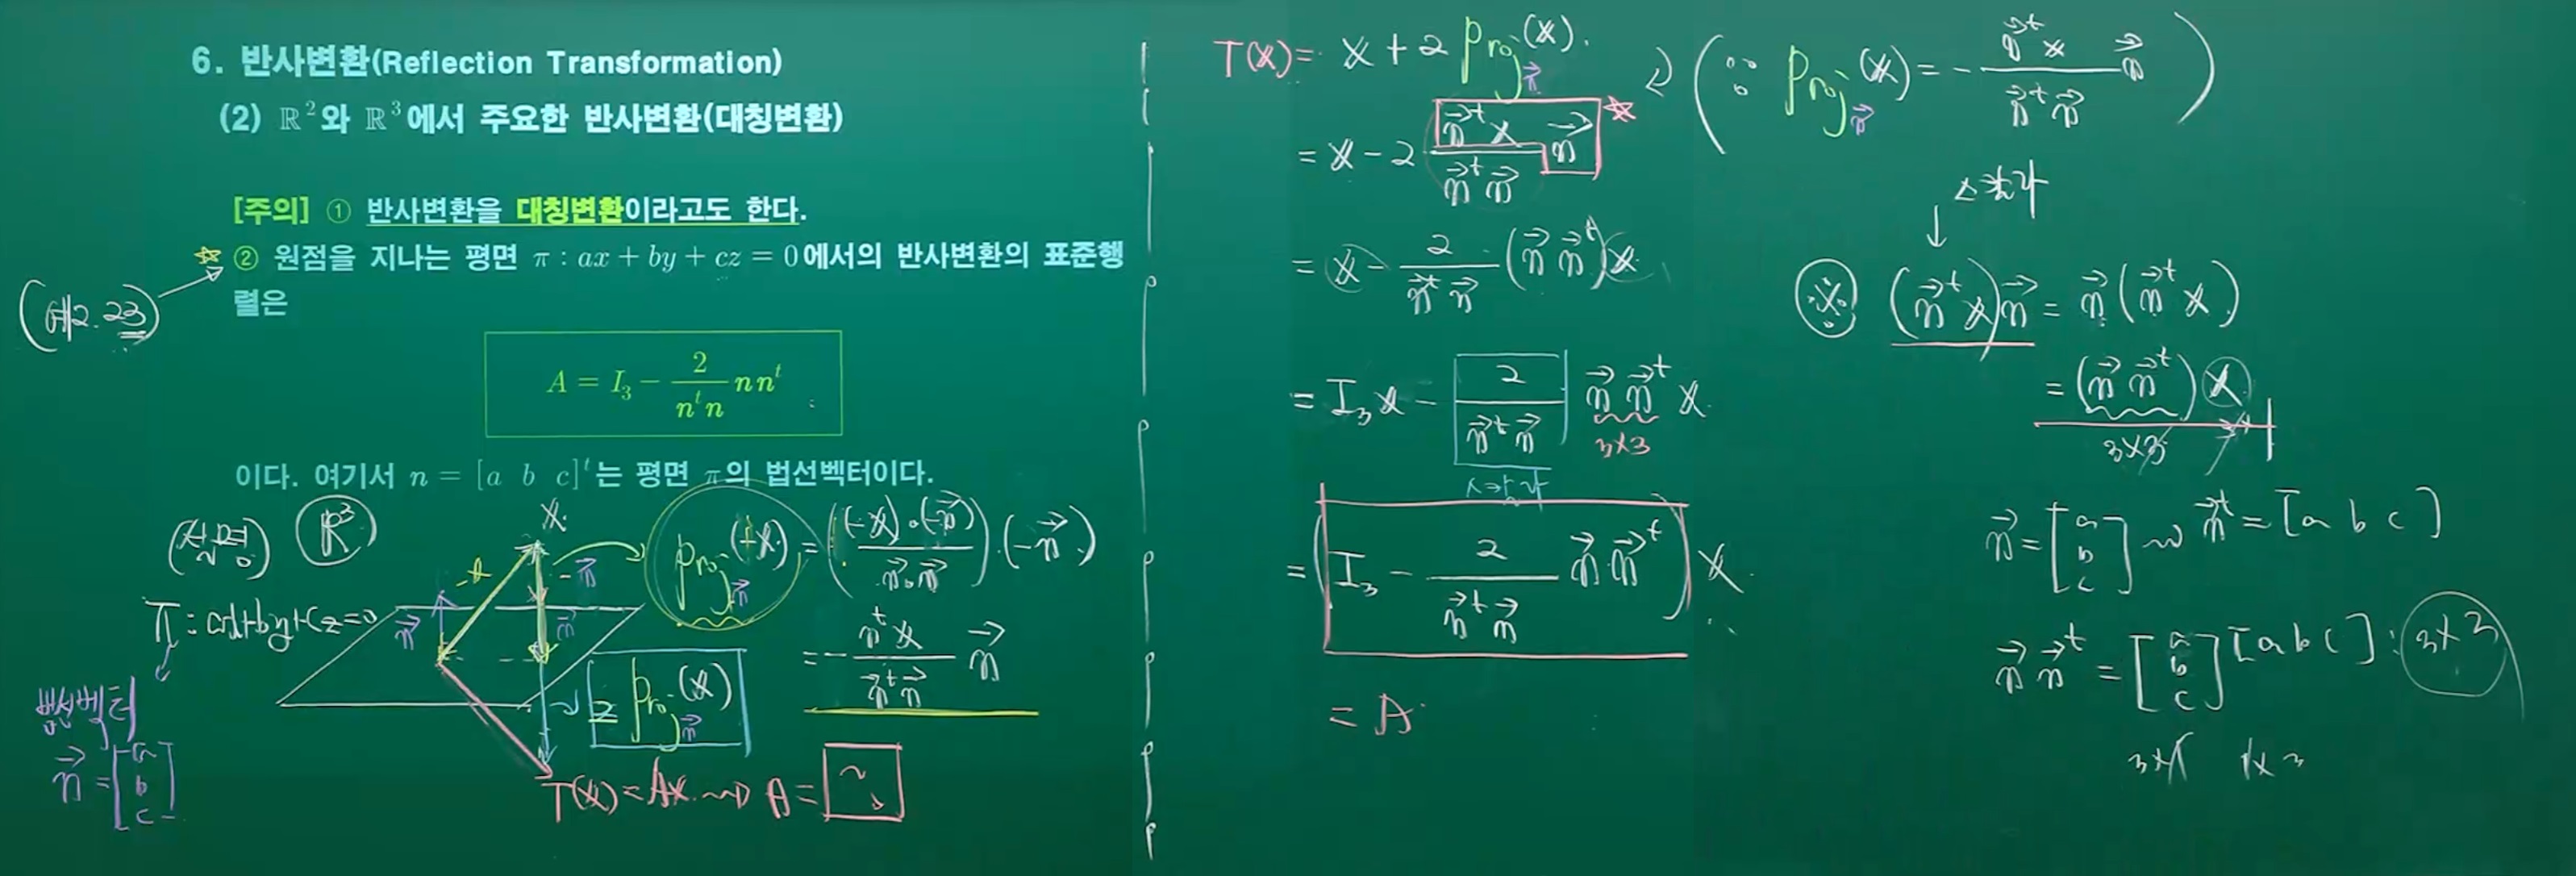 6. 반사변환(Reflection Transformation)
(2) ℝ²와 ℝ³에서 주요한 반사변환(대칭변환)
[주의] ① 반사변환을 대칭변환이라고도 한다.
☆ ② 원점을 지나는 평면 π : ax + by + cz = 0에서의 반사변환의 표준행
렬은
(예2.23)
A = I₃ − 2/(nᵗn) nnᵗ
이다. 여기서 n = [a b c]ᵗ는 평면 π의 법선벡터이다.
(설명) ℝ³
π : ax+by+cz=0
법선벡터
n⃗ = [a b c]
x
-x
-n⃗
n⃗
n⃗
proj_n⃗ (-x) = ((-x)∘(-n⃗) / n⃗∘n⃗)·(-n⃗)
= - (nᵗx / n⃗ᵗn⃗) n⃗
= proj_n⃗ (x)
T(x) = Ax ⇝ A = ?
T(x) = x + 2 proj_n⃗ (x).
(∵ proj_n⃗ (x) = - (n⃗ᵗx / n⃗ᵗn⃗) n⃗)
= x - 2 (n⃗ᵗx / n⃗ᵗn⃗) n⃗ ☆
= x - 2/(n⃗ᵗn⃗) (n⃗ n⃗ᵗ)x
= I₃x - 2/(n⃗ᵗn⃗) n⃗ n⃗ᵗ x
스칼라
3×3
= (I₃ - 2/(n⃗ᵗn⃗) n⃗ n⃗ᵗ) x
= A
스칼라
↓
※ (n⃗ᵗx)n⃗ = n⃗(n⃗ᵗx)
= (n⃗ n⃗ᵗ)x
3×3
n⃗ = [a b c] ⇝ n⃗ᵗ = [a b c]
n⃗ n⃗ᵗ = [a b c][a b c] : 3×3
3×1 1×3